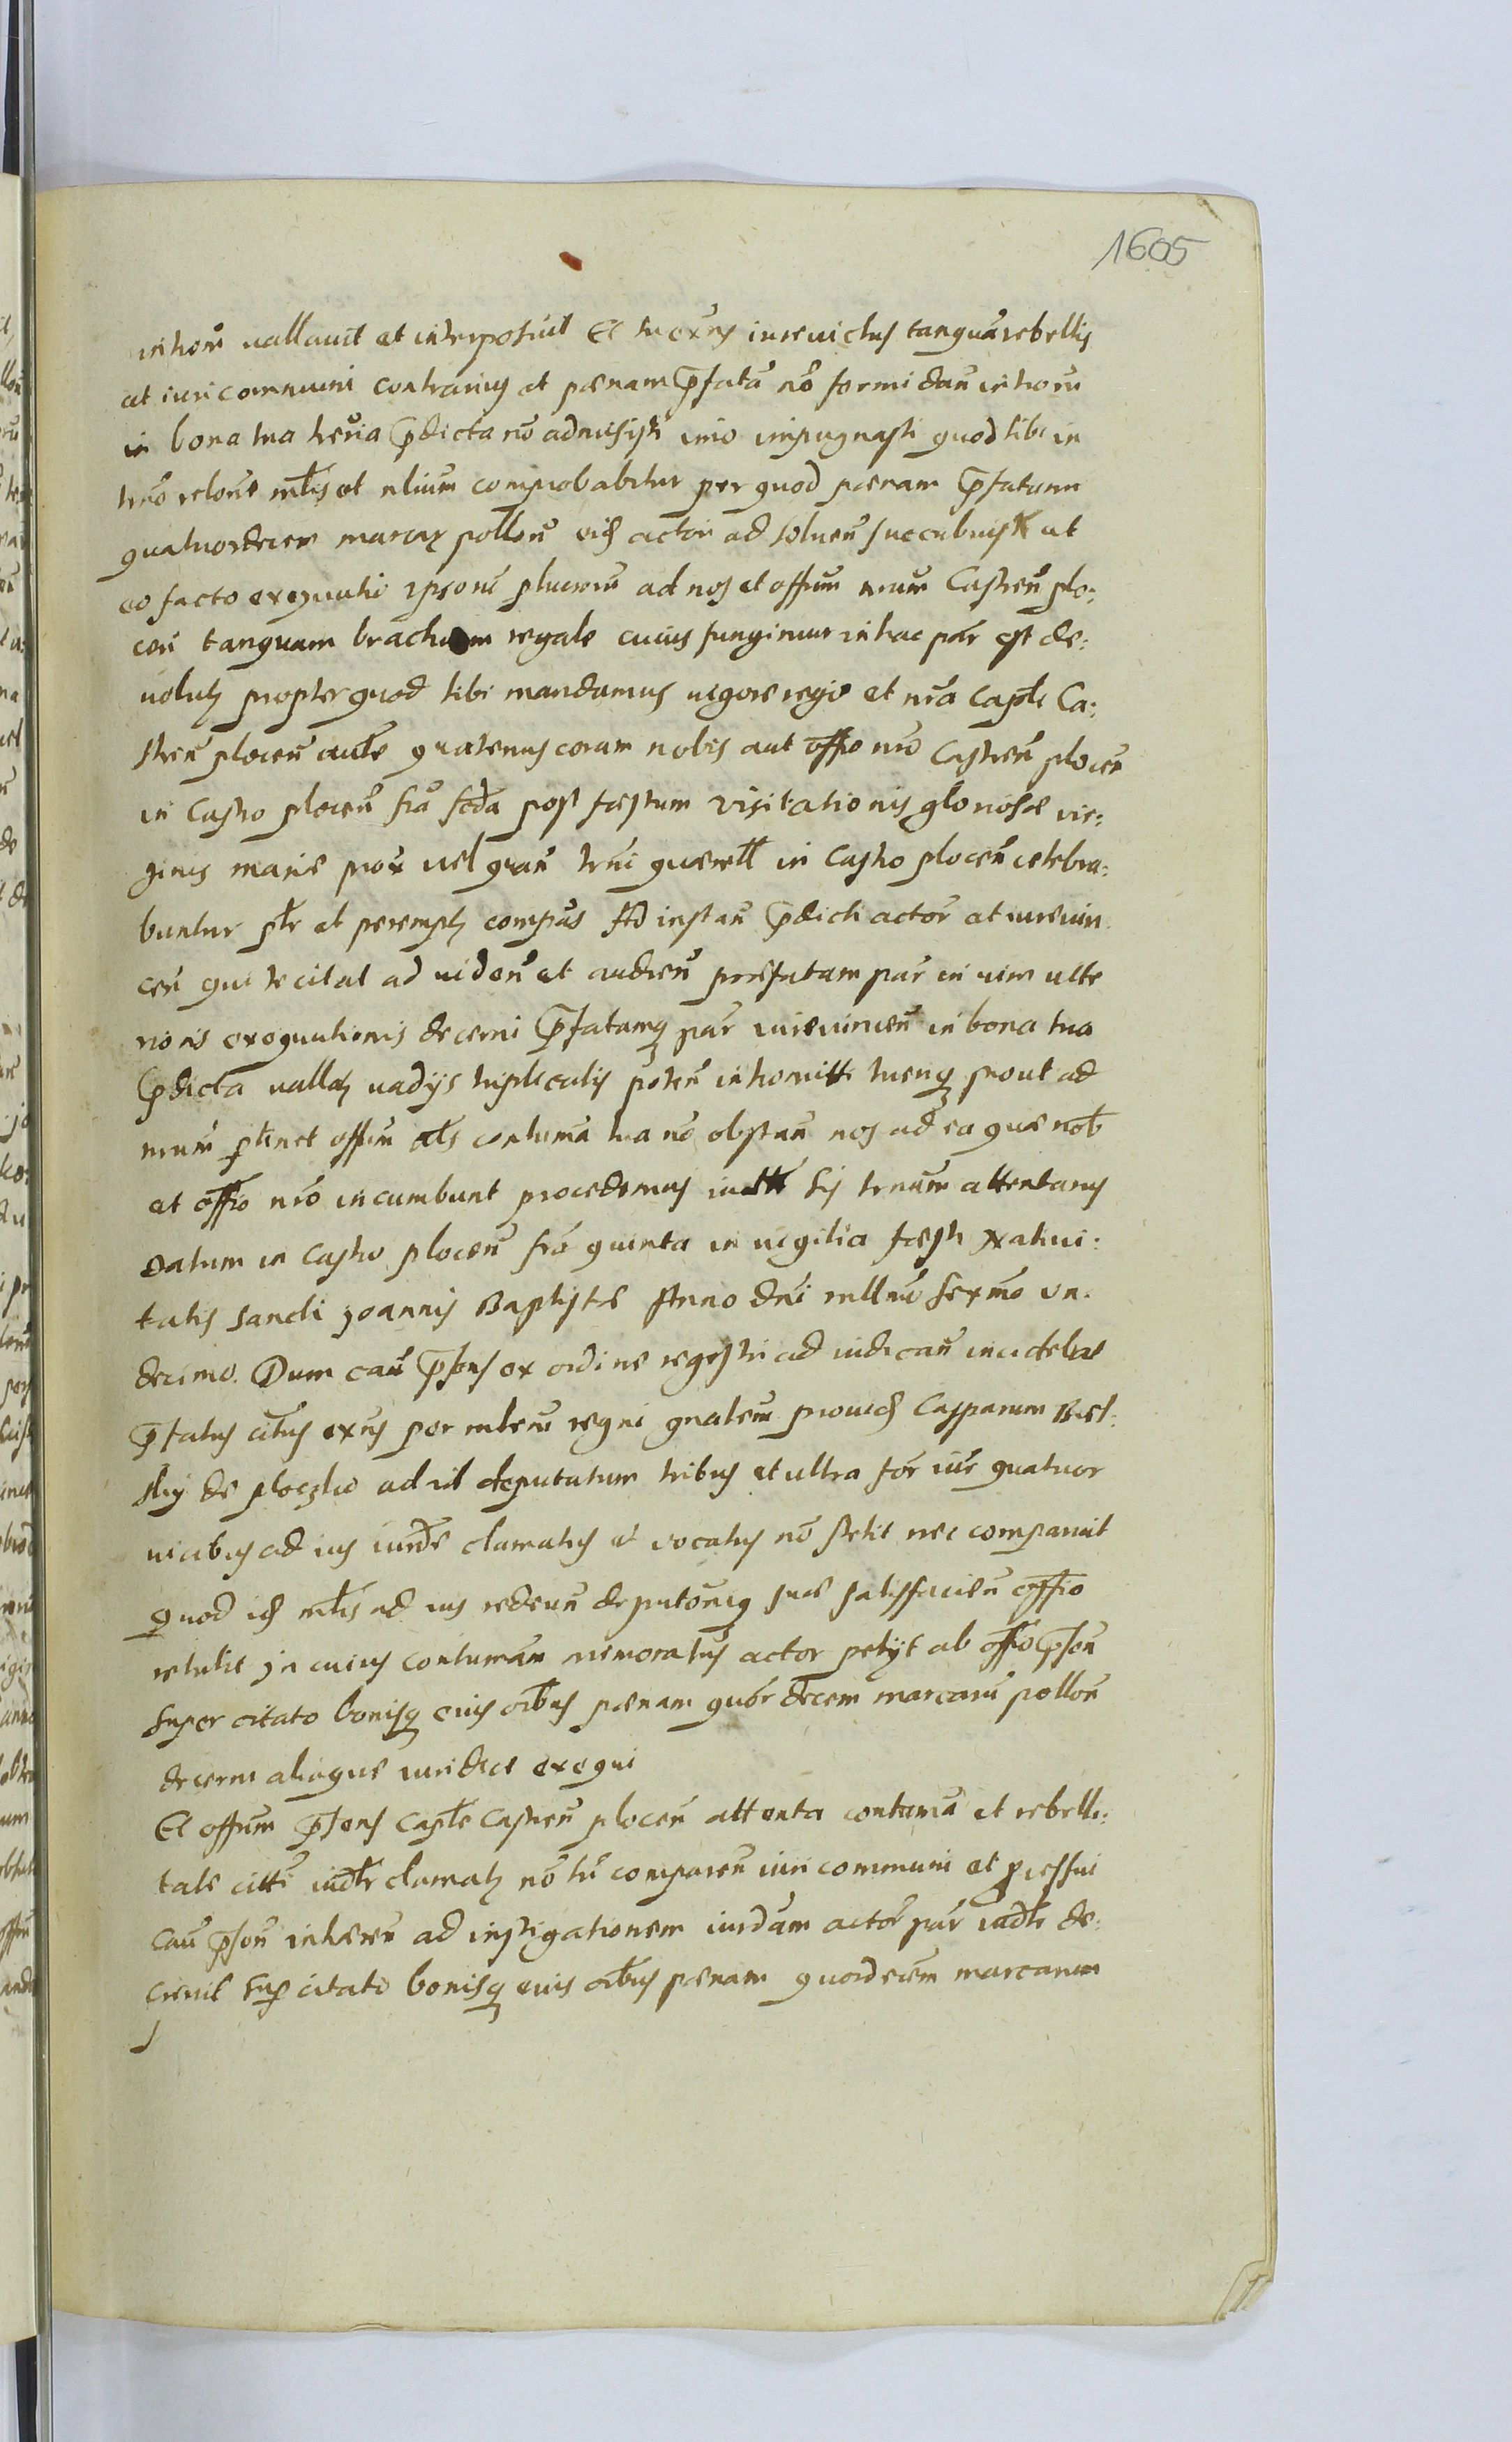 1605
introm̃ vallavit et interposuit Et tu exñs iurevictus tanquã rebellis
et iuri communi contrarius et pœnam p̃fatã nõ formidañ intrõm
in bona tua ter̃ria p̃dicta nõ admisisti imo impugnasti quod tibi in
tr̃no relõne mlis̃ et nlium comprobabitur per quod pœnam p̃fatam
quatuordecim marcar̃ pollõn eid̃ actori ad solveñ succubuisti et
eo facto exequutio ipsorũ plurimũ ad nos et offum nrum Castreñ plo:
ceñ tanquam brachium regale cuius fungimur in hac pãr est de:
volut̃ propter quod tibi mandamus vigore regio et nrã Captl̃i Ca:
streñ ploceñ autte quatenus coram nobis aut offio nrõ Castreñ ploceñ
in Castro ploceñ frã scdã post festum visitationis gloriosæ vir:
ginis mariæ prox vel quañ trñi querell̃ in Castro ploceñ celebra:
buntur ptr̃ et perempt̃ compãs Ad instañ p̃dicti actor̃ et iurevin
ceñ qui te citat ad videñ et audieñ præfatam pãr in vim ulte
rioris exequutionis decerni p̃fatamq̃ pãr iurevinceñ in bona tua
p̃dicta vallat̃ vadijs triplicatis poteñ intromitti tuenq̃ prout ad
nrum ptinet offum als̃ contuma tua nõ obstañ nos ad ea quæ nob̃
et offio nrõ incumbunt procedemus iur̃ Sis trñum attentarus
Datum in Castro ploceñ frã quinta in vigilia festi Nativi:
tatis Sancti Joannis Baptistæ Anno Dñi millmõ sexmo un.
decimo. Dum cañ p̃sens ex ordine regestri ad iudicañ incidebat
p̃fatus citus exñs per mlem̃ regni gnalem provid̃ Casparum Biel:
sky de ploczko ad id deputatum tribus et ultra for̃ iur̃ quatuor
vicibus ad ius iurdẽ clamatus et vocatus nõ stetit nec comparuit
Quod id̃ mlis̃ ad ius redeun deputõniq̃ suæ satisfacieñ offio
retulit In cuius contumãm memoratus actor petijt ab offio p̃sen
super citato bonisq̃ eius oĩbus pœnam quõr decem marcarũ pollõn
decerni aliaque iuridice exequi
Et offium p̃sens Captl̃e Castreñ ploceñ attenta contuma et rebelli:
tate citti iudtr̃ clamat̃ nõ tñ compareñ iuri communi et p̃cessui
cañ p̃sen inhæreñ ad instigationem iurdam actor̃ pãr iudtr̃ de:
crevit sup̃ citato bonisq̃ eius oĩbus pœnam quordecim marcarum